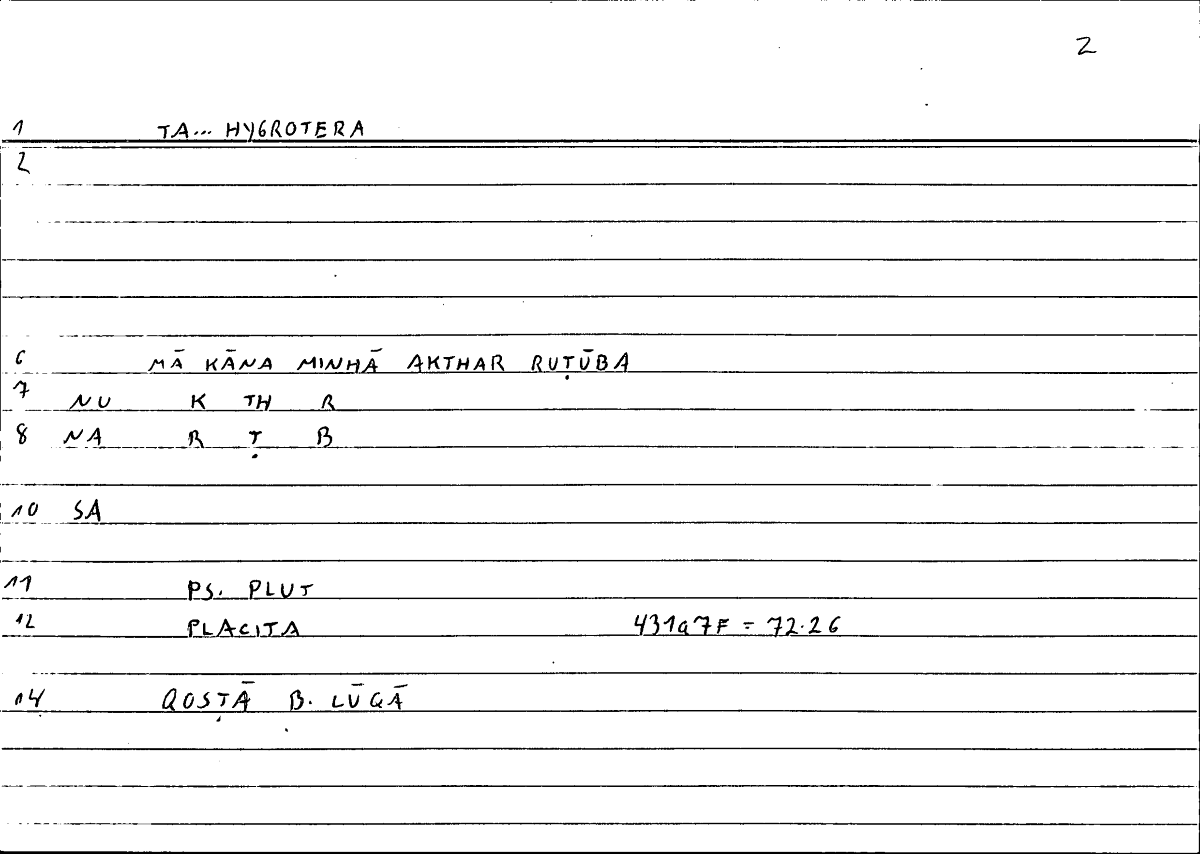 2
1 TA... HYGROTERA
2
6 MĀ KĀNA MINHĀ AKTHAR RUṬŪBA
7 NU K TH R
8 NA R Ṭ B
10 SA
11 PS. PLUT
12 PLACITA 431a7F = 72.26
14 QOSṬĀ B. LŪQĀ